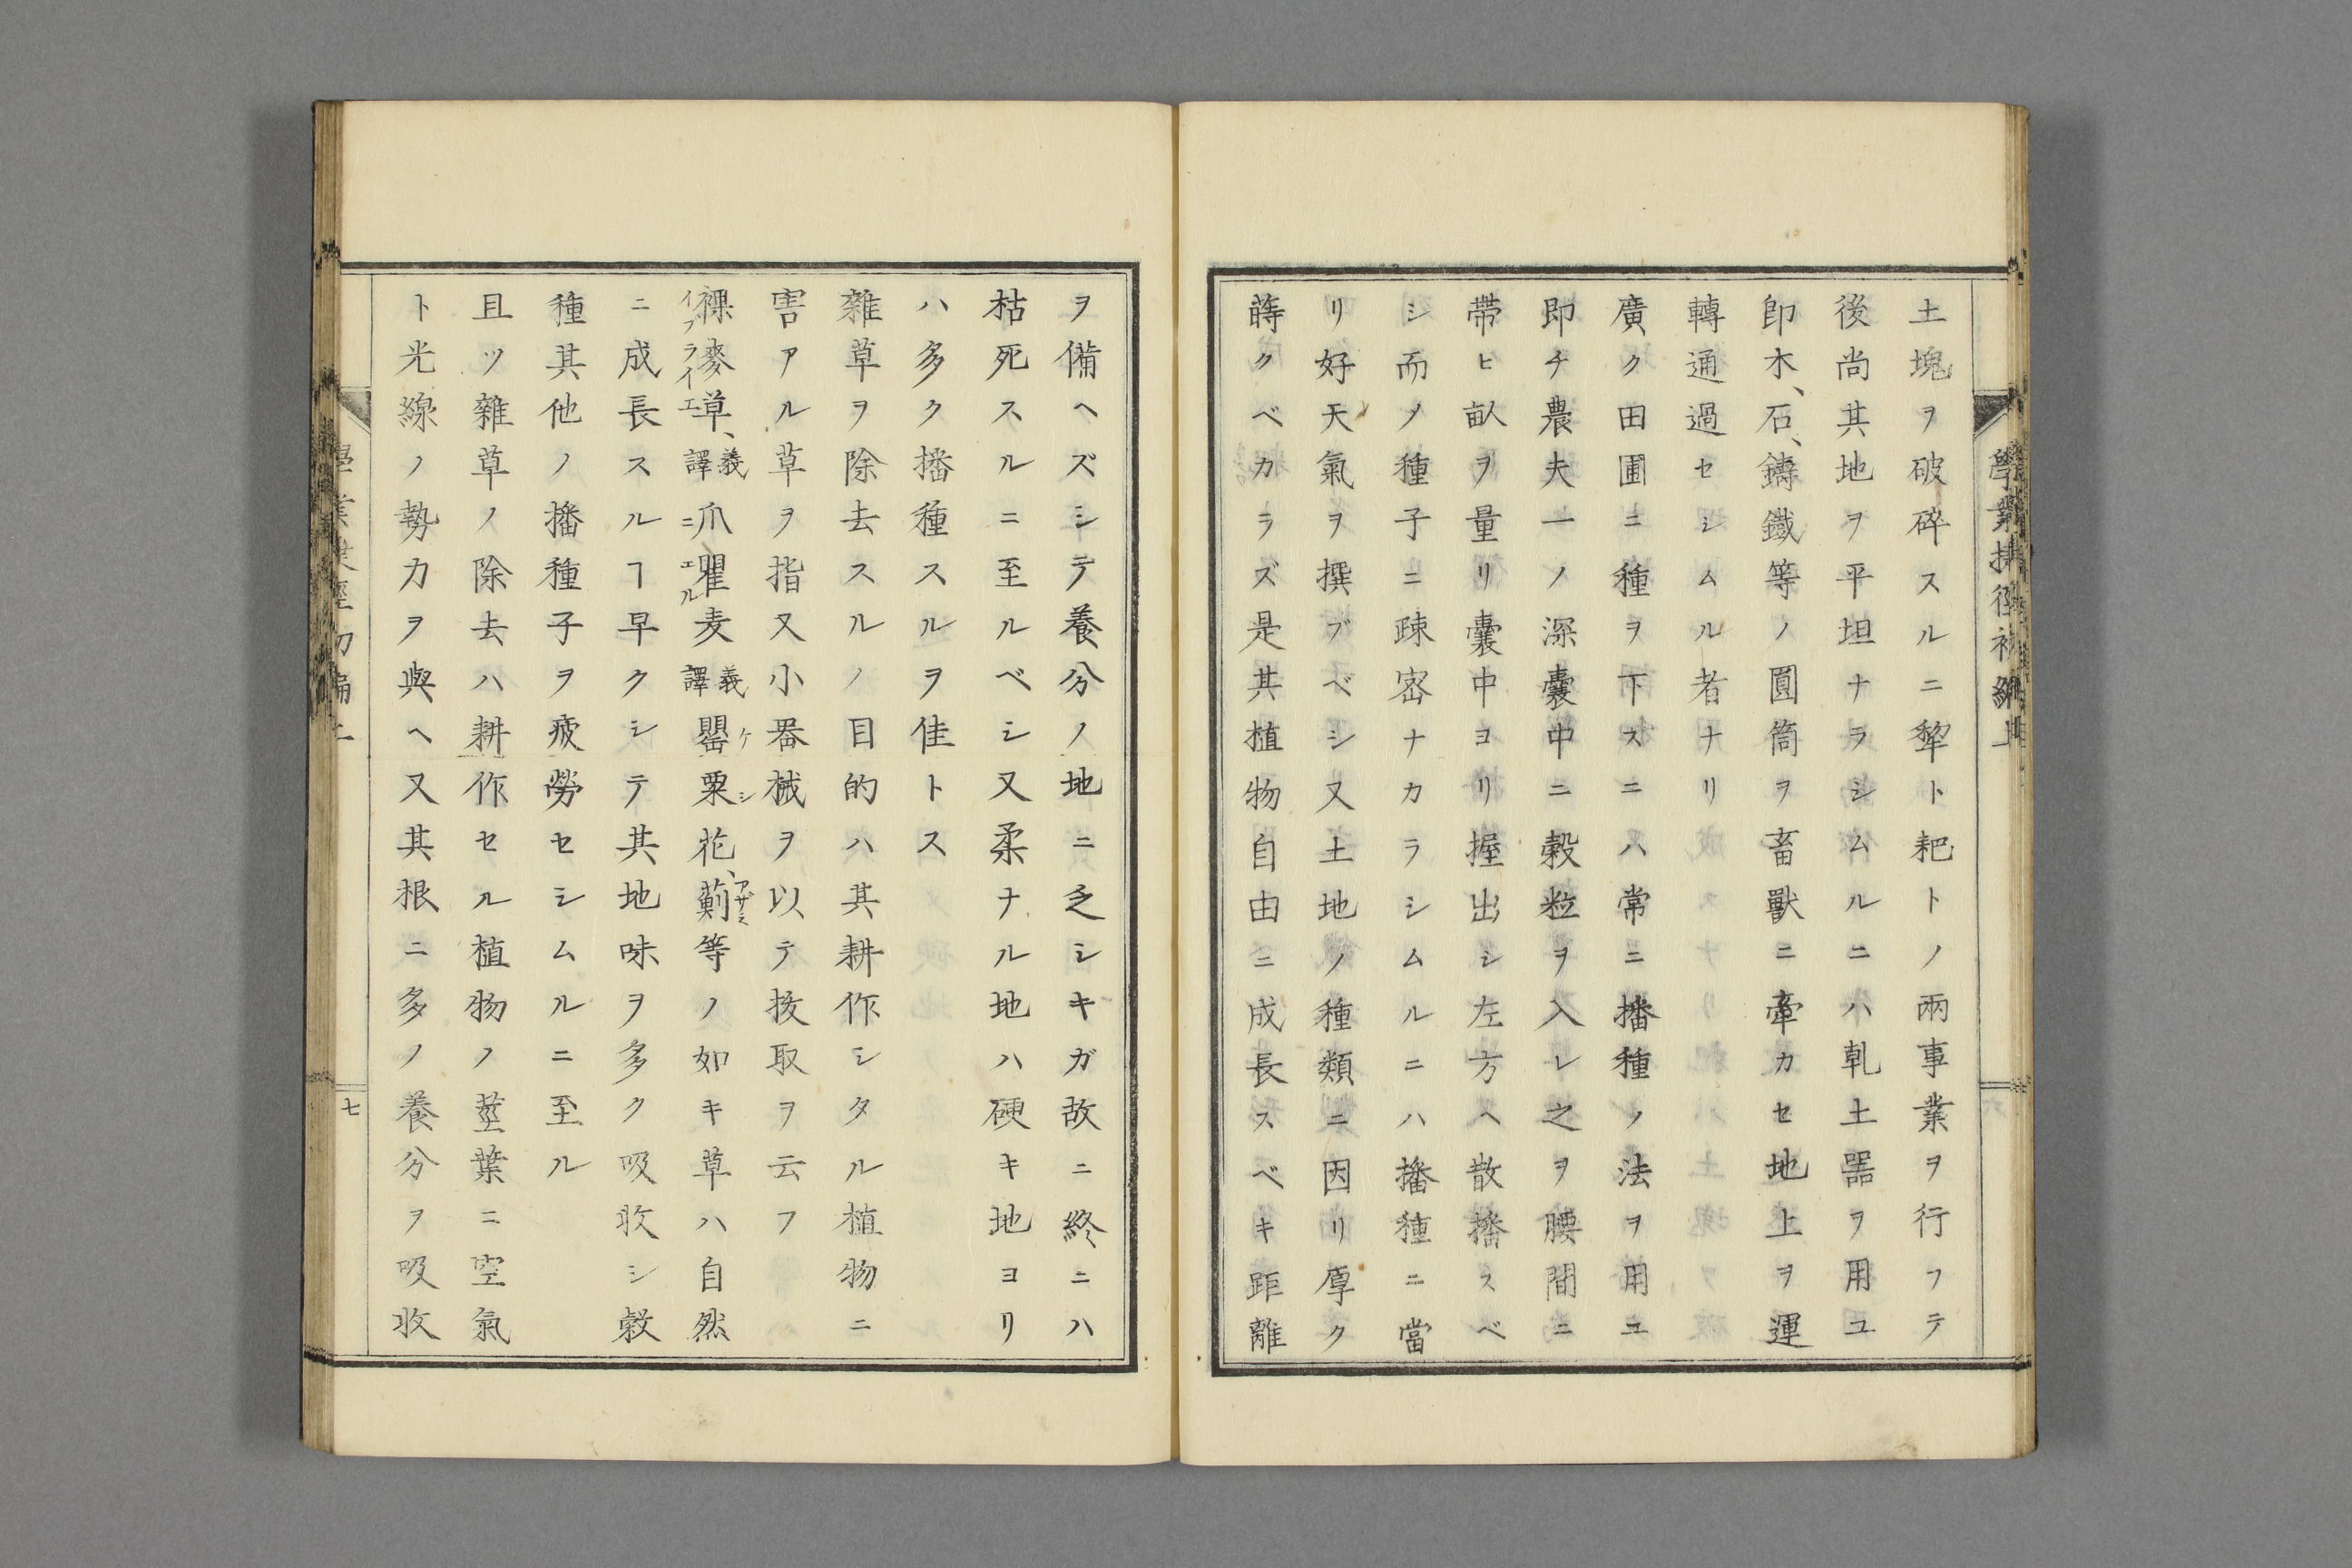 土塊ヲ破碎スルニ犂ト耙トノ兩事業ヲ行フテ
後尚其地ヲ平坦ナラシムルニハ軋土器ヲ用ユ
卽木、石、鑄鐵等ノ圓筒ヲ畜獸ニ牽カセ地上ヲ運
轉通過セシムル者ナリ
廣ク田圃ニ種ヲ下スニハ常ニ播種ノ法ヲ用ユ
即チ農夫一ノ深囊中ニ穀粒ヲ入レ之ヲ腰間ニ
帶ヒ畝ヲ量リ囊中ヨリ握出シ左方ヘ散播スベ
シ而ノ種子ニ疎密ナカラシムルニハ播種ニ當
リ好天氣ヲ撰ブベシ又土地ノ種類ニ因リ厚ク
蒔クベカラズ是其植物自由ニ成長スベキ距離
學業捷徑初編上
六
ヲ備ヘズシテ養分ノ地ニ乏シキガ故ニ終ニハ
枯死スルニ至ルベシ又柔ナル地ハ硬キ地ヨリ
ハ多ク播種スルヲ佳トス
雜草ヲ除去スルノ目的ハ其耕作シタル植物ニ
害アル草ヲ指又小器械ヲ以テ拔取ヲ云フ
裸麥草、義譯爪瞿麦義譯罌粟花、薊等ノ如キ草ハ自然
イフライエ
ニエル
ケシ
アザミ
ニ成長スルヿ早クシテ其地味ヲ多ク吸收シ穀
種其他ノ播種子ヲ疲勞セシムルニ至ル
且ツ雜草ノ除去ハ耕作セル植物ノ莖葉ニ空氣
ト光線ノ勢力ヲ與ヘ又其根ニ多ノ養分ヲ吸收
七